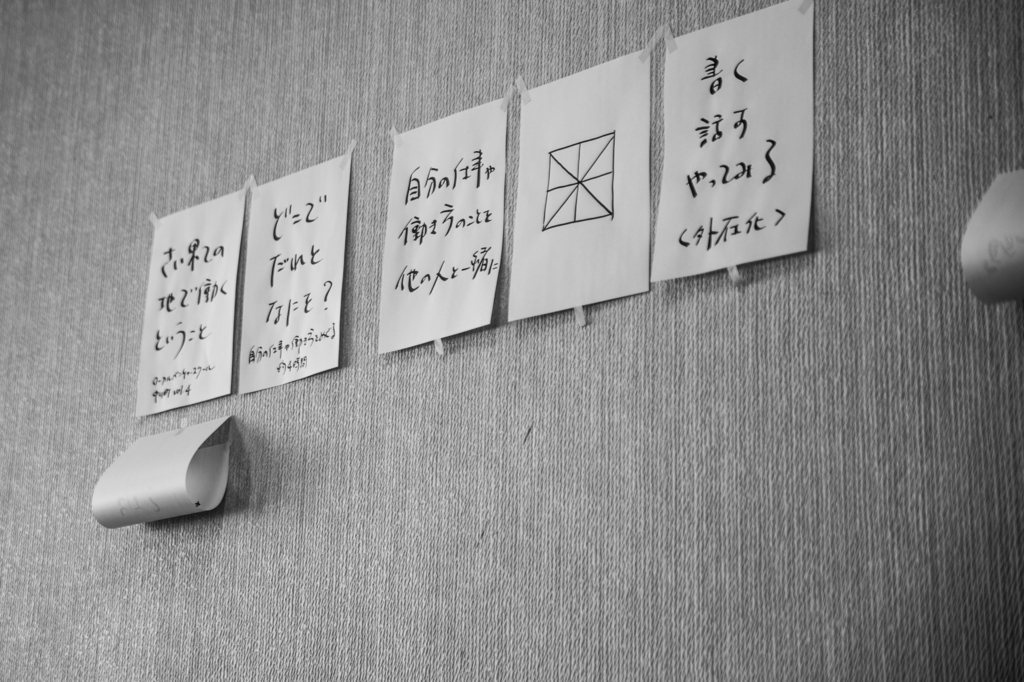 さい果ての
地で働く
ということ
ローカルベンチャースクール
vol.4
どこで
だれと
なにを?
自分の仕事や働き方をめぐる
約4時間
自分の仕事や
働き方のことを
他の人と一緒に
書く
話す
やってみる
<外在化>